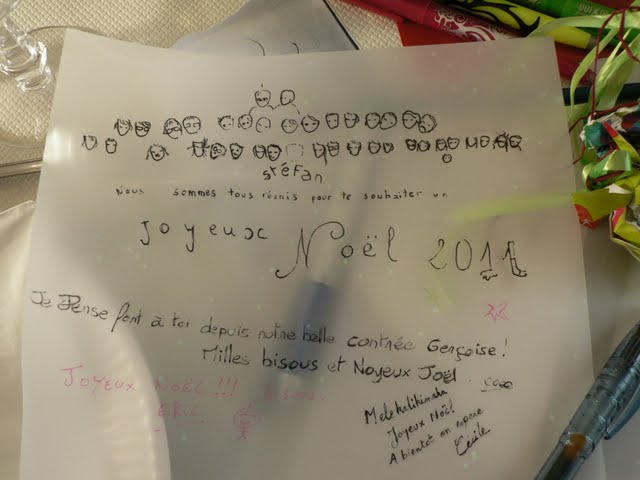 stéfan
Nous sommes tous réunis pour te souhaiter un
Joyeux Noël 2011
Je Pense fort à toi depuis notre belle contrée Gersoise !
Milles bisous et Noyeux Joël. coco
JOYEUX NOËL !!! Bisous.
ERIC.
Mele kalikimaka
Joyeux Noël!
A bientôt en espane
Cécile